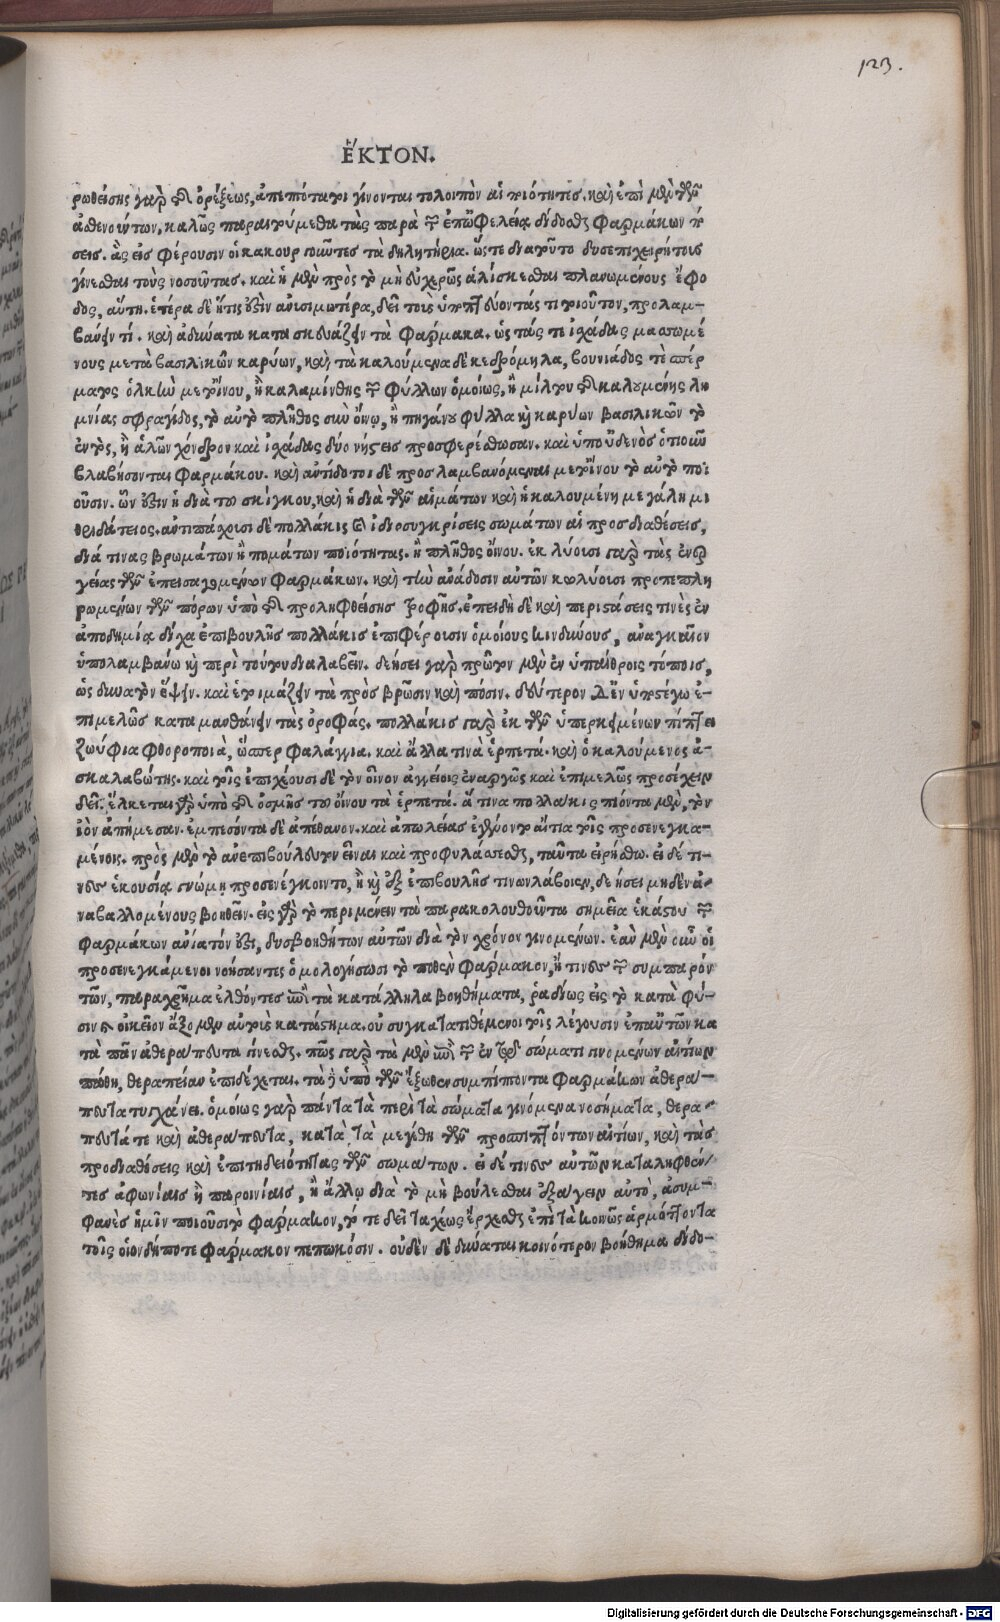 123.
ἝΚΤΟΝ.
ρωθείσης γὰρ τῆς ὀρέξεως, ἀπιπόταται γίνονται τολοιπὸν αἱ ποιότητες. καὶ ἐπὶ μὲν τῶν
ἀσθενούντων, καλῶς παραιτύμεθα τὰς παρὰ τῶν ἐπ' ὠφελείᾳ δίδοσθαι φαρμάκων
σεις. ἃς εἰσφέρουσιν οἱ κακουρ τὰ δηλητήρια. ὥστε διατοῦτο δυσεπιχειρήτους
γίνεσθαι τοὺς νοσοῦντας. καὶ ἡ μὲν πρὸς τὸ μὴ εὐχερῶς ἁλίσκεσθαι πλανωμένους ἔφο
δος, αὕτη. ἑτέρα δὲ ἥτις ἐστὶν ἀνυσιμωτέρα, δεῖ τοὺς ὑποπτεύοντάς τι τοιοῦτον, προλαμ-
βάνειν τί. καὶ ἀδύνατα κατασκευάζειν τὰ φάρμακα. ὡς τάς τε ἰσχάδας μασωμέ
νους μετὰ βασιλικῶν καρύων, καὶ τὰ καλούμενα δὲ κεδρόμηλα, βουνιάδος τε σπέρ
ματος ὁλκὴν μετ' οἴνου, ἢ καλαμίνθης τῶν φύλλων ὁμοίως, ἢ μίλτον τῆς καλουμένης λη
μνίας σφραγῖδος, τὸ αὐτὸ πλῆθος σὺν οἴνῳ, ἢ πηγάνου φύλλα καὶ καρύων βασιλικῶν τὸ
ἐντὸς, ἢ ἁλῶν χόνδρον καὶ ἰσχάδας δύο νήστεις προσφερέσθωσαν. καὶ ὑπ' οὐδενὸς ὁτιοῦν
βλαβήσονται φαρμάκου. καὶ ἀντίδοτοι δὲ προσλαμβανόμεναι μετ' οἴνου τὸ αὐτὸ ποι
οῦσιν. ὧν ἐστὶν ἡ διὰ τοῦ σκίγκου, καὶ ἡ διὰ τῶν αἱμάτων καὶ ἡ καλουμένη μεγάλη μι
θριδάτειος. ἀντιπάσχουσι δὲ πολλάκις καὶ ἰδιοσυγκρίσεις σωμάτων αἱ προσδιαθέσεις,
διά τινας βρωμάτων ἢ πομάτων ποιότητας. ἢ πλῆθος οἴνου. ἐκλύουσι γὰρ τὰς ἐνερ
γείας τῶν ἐπεισαγομένων φαρμάκων. καὶ τὴν ἀνάδοσιν αὐτῶν κωλύουσι προπεπλη
ρωμένων τῶν πόρων ὑπὸ τῆς προληφθείσης τροφῆς. ἐπειδὴ δὲ καὶ περιστάσεις τινὲς ἐν
ἀποδημίᾳ δίχα ἐπιβουλῆς πολλάκις ἐπιφέρουσιν ὁμοίους κινδύνους, ἀναγκαῖον
ὑπολαμβάνω καὶ περὶ τούτου διαλαβεῖν. δεήσει γὰρ πρῶτον μὲν ἐν ὑπαίθροις τόποις,
ὡς δυνατὸν ἕψειν. καὶ ἑτοιμάζειν τὰ πρὸς βρῶσιν καὶ πόσιν. δεύτερον δὲ ἐν ὑποστέγῳ ἐ-
πιμελῶς καταμανθάνειν τὰς ὀροφάς. πολλάκις γὰρ ἐκ τῶν ὑπερκειμένων πίπτει
ζωύφια φθοροποιὰ, ὥσπερ φαλάγγια. καὶ ἄλλα τινὰ ἑρπετά. καὶ ὁ καλούμενος ἀ-
σκαλαβώτης. καὶ τοῖς ἐπιχέουσι δὲ τὸν οἶνον ἀγγείοις ἐναργῶς καὶ ἐπιμελῶς προσέχειν
δεῖ. ἕλκεται γὰρ ὑπὸ τῆς ὀσμῆς τοῦ οἴνου τὰ ἑρπετά. ἅ τινα πολλάκις πιόντα μὲν, τὸν
ἰὸν ἀπήμεσαν. ἐμπεσόντα δὲ ἀπέθανον. καὶ ἀπωλείας ἐγένοντο αἴτια τοῖς προσενεγκα-
μένοις. πρὸς μὲν τὸ ἀνεπιβούλευτον εἶναι καὶ προφυλάσσεσθαι, ταῦτα εἰρήσθω. εἰ δέ τι-
νες ἑκουσίᾳ γνώμῃ προσενέγκοιντο, ἢ καὶ ἐξ ἐπιβουλῆς τινων λάβοιεν, δεήσει μηδὲν ἀ-
ναβαλλομένους βοηθεῖν. εἰς γὰρ τὸ περιμένειν τὰ παρακολουθοῦντα σημεῖα ἑκάστου τῶν
φαρμάκων ἀνίατόν ἐστι, δυσβοηθήτων αὐτῶν διὰ τὸν χρόνον γινομένων. ἐὰν μὲν οὖν οἱ
προσενεγκάμενοι νοήσαντες ὁμολογήσωσι τὸ ποθὲν φάρμακον, ἤ τινες τῶν συμπαρόν
των, παραχρῆμα ἐλθόντες ἐπὶ τὰ κατάλληλα βοηθήματα, ῥᾳδίως εἰς τὸ κατὰ φύ-
σιν καὶ οἰκεῖον ἄξομεν αὐτοὺς κατάστημα. οὐ συγκατατιθέμενοι τοῖς λέγουσιν ἐπ' αὐτῶν κα
τὰ πᾶν ἀθεράπευτα γίνεσθαι. πῶς γὰρ τὰ μὲν ἐπὶ τῶν ἐν τῷ σώματι γινομένων αἰτίων
πάθη, θεραπείαν ἐπιδέχεται. τὰ δὲ ὑπὸ τῶν ἔξωθεν συμπίπτοντα φαρμάκων ἀθερα-
πευτα τυγχάνει. ὁμοίως γὰρ πάντα τὰ περὶ τὰ σώματα γινόμενα νοσήματα, θερα-
πευτά τε καὶ ἀθεράπευτα, κατὰ τὰ μεγέθη τῶν προσπιπτόντων αἰτίων, καὶ τὰς
προδιαθέσεις καὶ ἐπιτηδειότητας τῶν σωμάτων. εἰ δέ τινες αὐτῶν καταληφθέν-
τες ἀφωνίαις ἢ παροινίαις, ἢ ἄλλῳ διὰ τὸ μὴ βούλεσθαι ἐξάγειν αὐτὸ, ἀσυμ-
φανὲς ἡμῖν ποιοῦσι τὸ φάρμακον, τότε δεῖ ταχέως ἔρχεσθαι ἐπὶ τὰ κοινῶς ἁρμόττοντα
τοῖς οἱονδήποτε φάρμακον πεπωκόσιν. οὐδὲν δὲ δύναται κοινότερον βοήθημα δίδο-
Digitalisierung gefördert durch die Deutsche Forschungsgemeinschaft - DFG